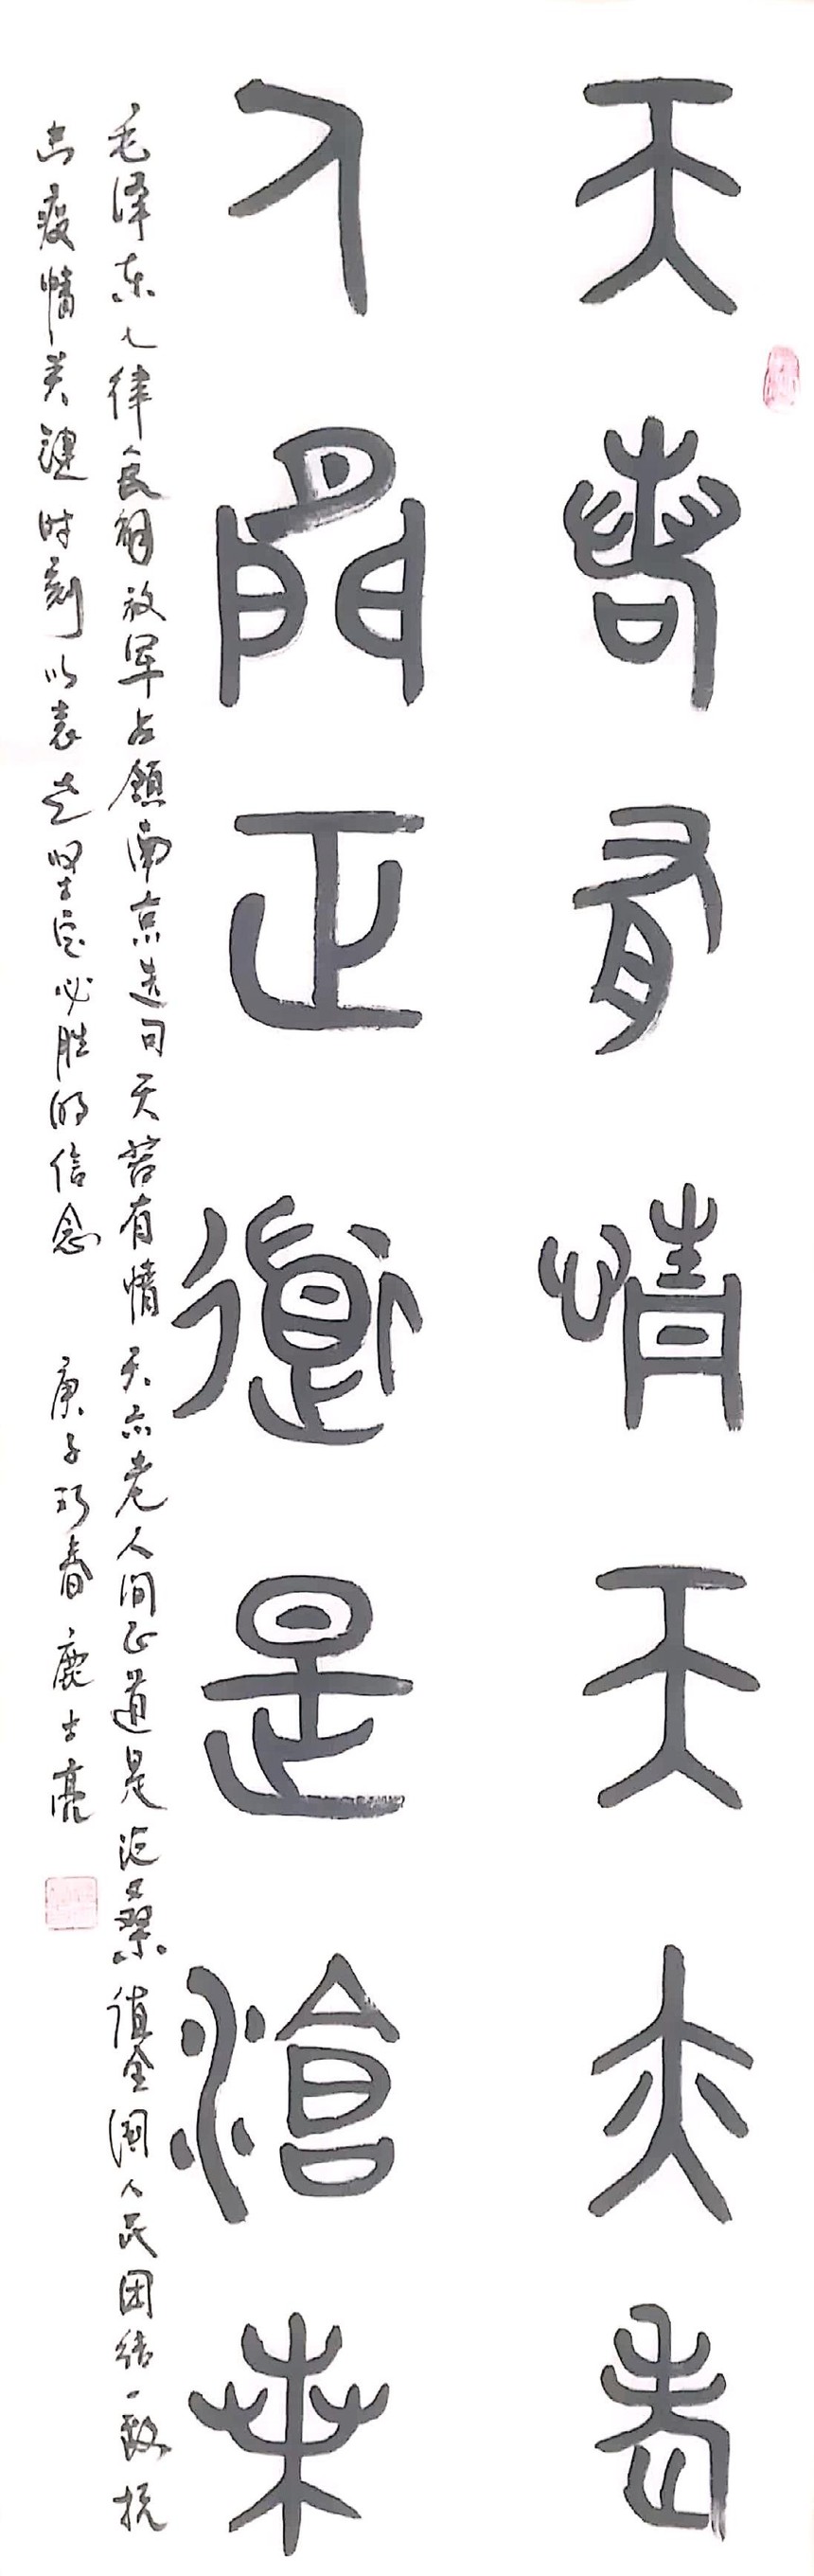 天若有情天亦老
人间正道是沧桑
毛泽东七律人民解放军占领南京选句天若有情天亦老人间正道是沧桑值全国人民团结一致抗
击疫情关键时刻以表达坚定必胜的信念 庚子初春鹿士亮